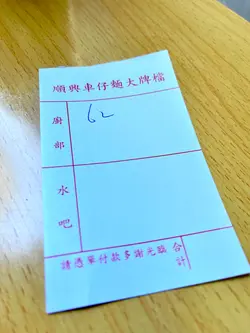 順興車仔麵大牌檔
廚部
62
水吧
請憑單付款多謝光臨
合計